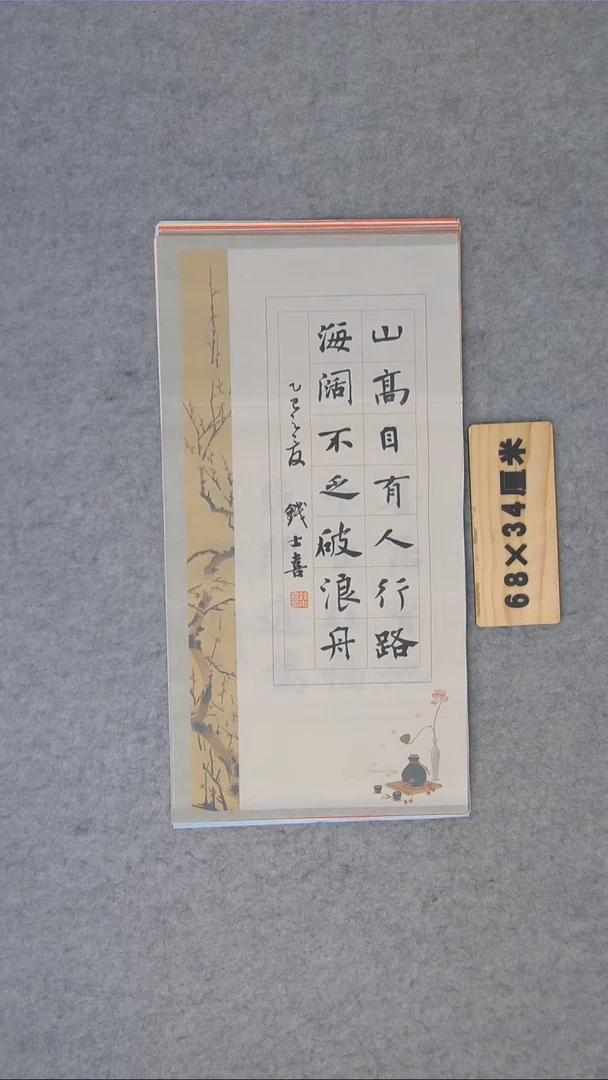 山高自有人行路
海阔不乏破浪舟
乙巳之夏 錢士喜
68×34厘米